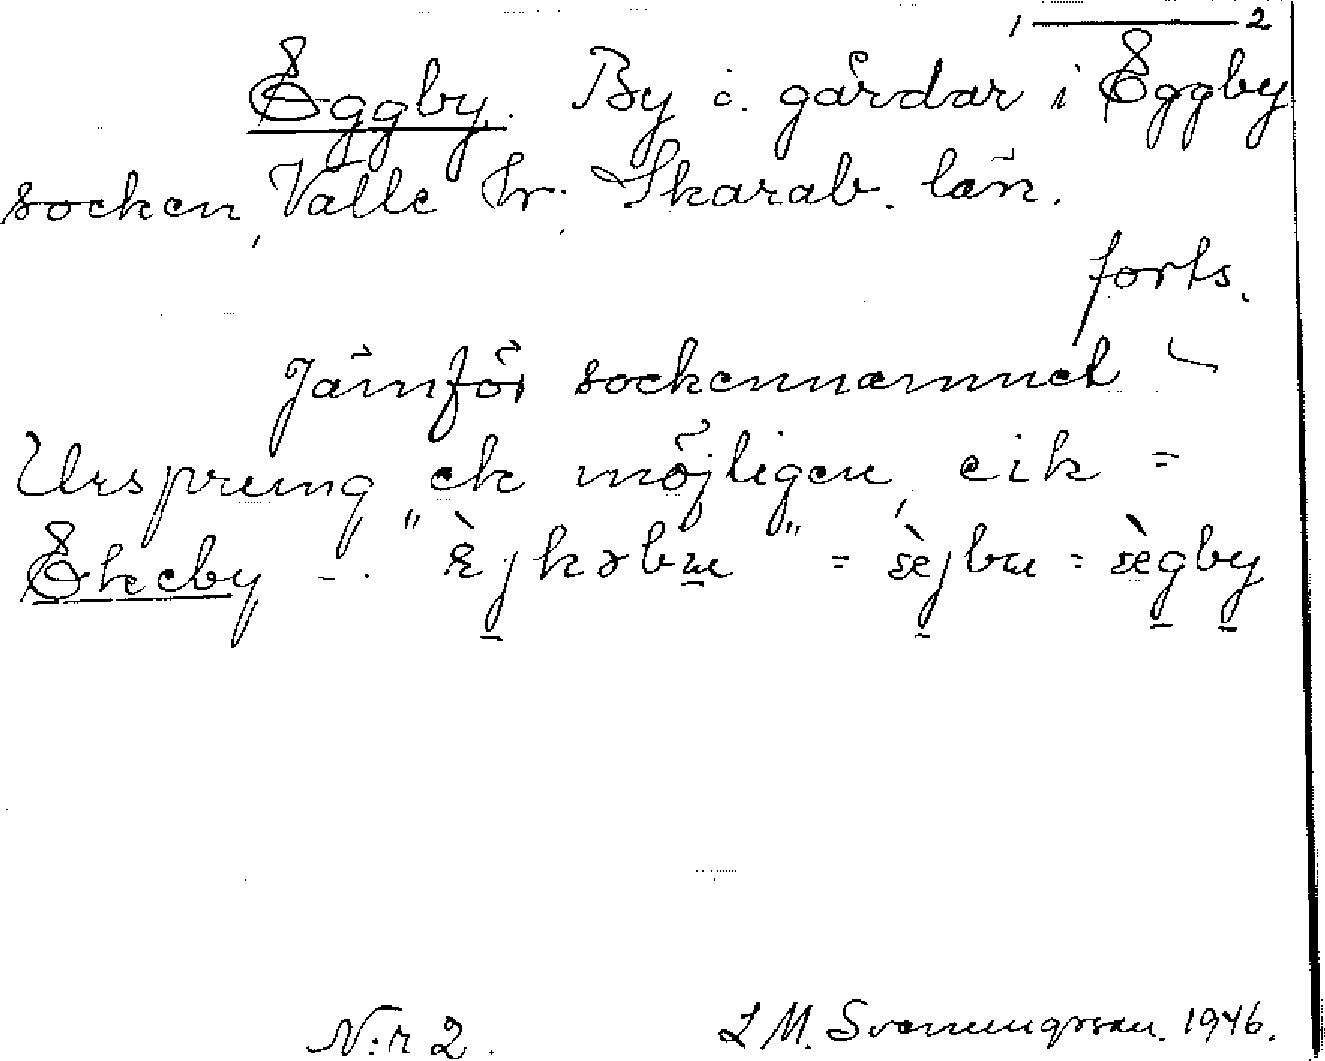 1 — 2
Eggby. By o. gårdar i Eggby
socken, Valle hr. Skarab. län.
forts.
Jämför sockennamnet –
Ursprung ek möjligen, eik =
Ekeby – . "ὲjkəbɯ" = æ̀jbɯ = æ̀gby
N:r 2. L M. Svenungsson. 1946.